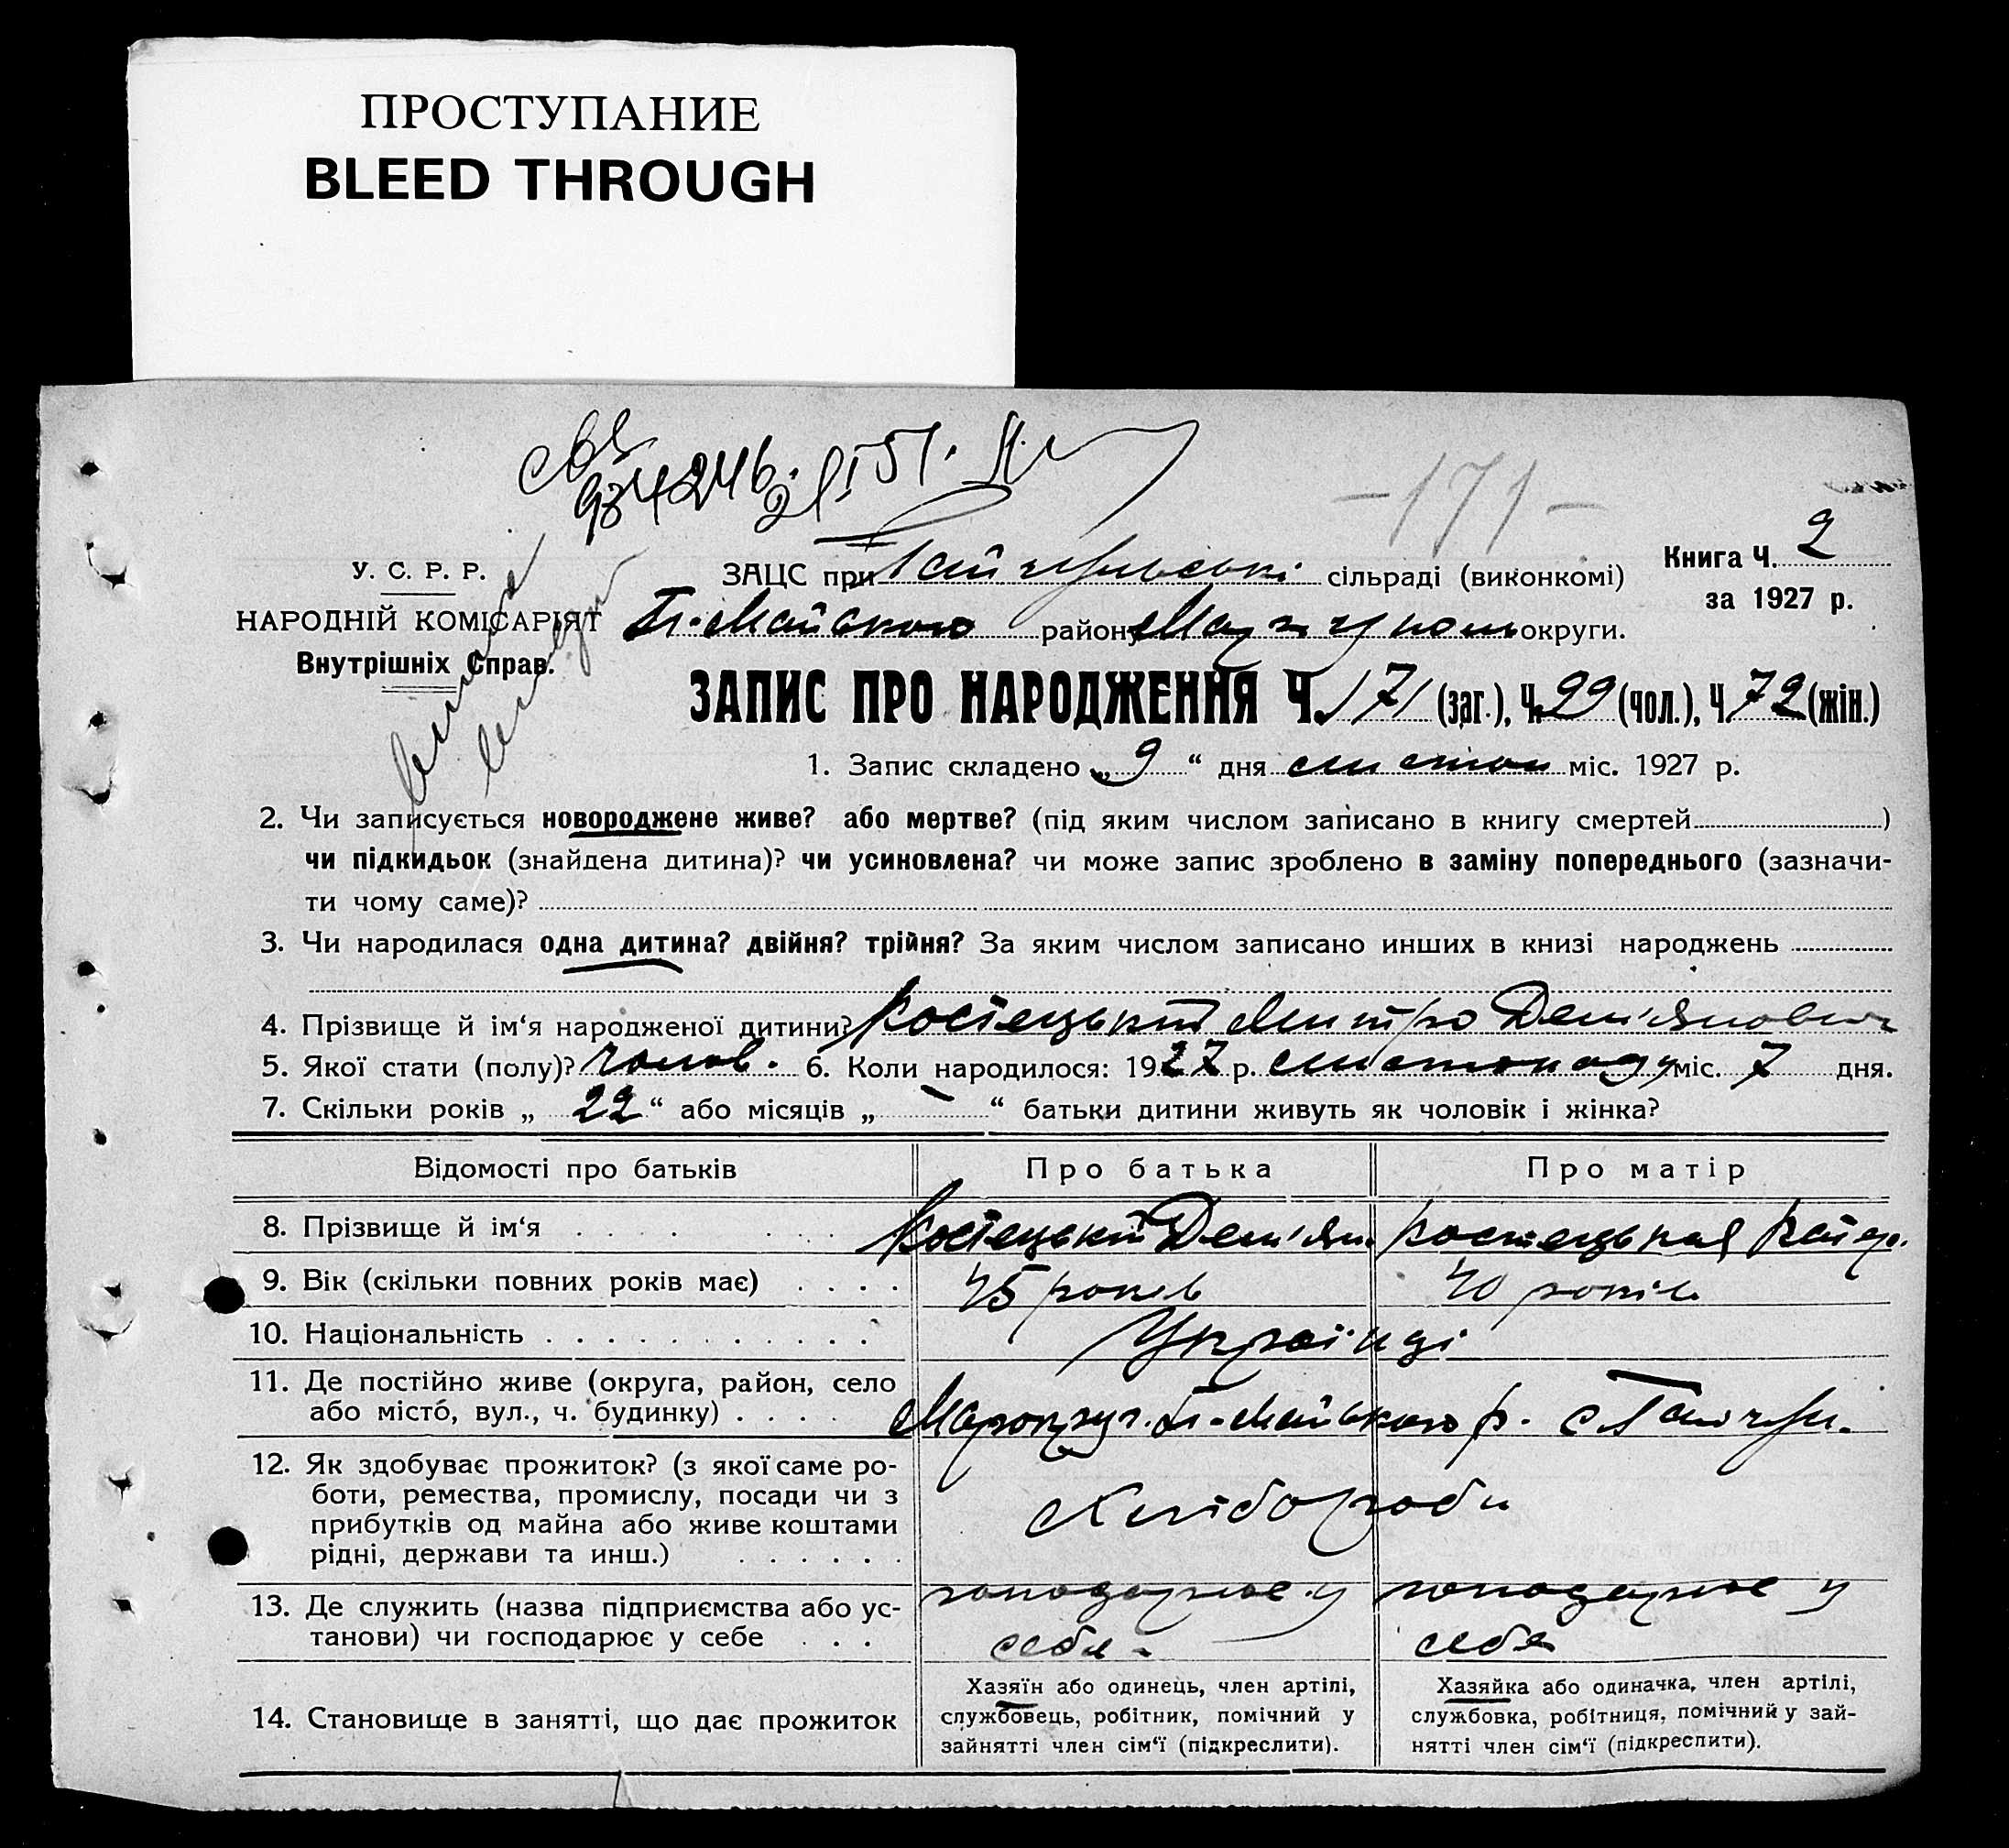 ПРОСТУПАНИЕ
BLEED THROUGH
934246. 21 I 51.
-171-
У. С. Р. Р.
НАРОДНІЙ КОМІСАРІЯТ
Внутрішніх Справ.
ЗАЦС при сільраді (виконкомі)
Книга Ч. 2
за 1927 р.
П.-Майського району округи.
ЗАПИС ПРО НАРОДЖЕННЯ Ч. 171 (заг.), Ч. 99 (чол.), Ч. 72 (жін.)
1. Запис складено „ 9 “ дня листоп міс. 1927 р.
2. Чи записується новороджене живе? або мертве? (під яким числом записано в книгу смертей )
чи підкидьок (знайдена дитина)? чи усиновлена? чи може запис зроблено в заміну попереднього (зазначи-
ти чому саме)?
3. Чи народилася одна дитина? двійня? трійня? За яким числом записано инших в книзі народжень
4. Прізвище й ім‘я народженої дитини? Костецький Дмитро Дем'янович
5. Якої стати (полу)? чолов. 6. Коли народилося: 1927 р. листопаду міс. 7 дня.
7. Скільки років „ 22 “ або місяців „ - “ батьки дитини живуть як чоловік і жінка?
Відомості про батьків Про батька Про матір
8. Прізвище й ім‘я Костецький Дем'ян. Костецькая
9. Вік (скільки повних років має) 45 років 40 років
10. Національність Українці
11. Де постійно живе (округа, район, село
або місто, вул., ч. будинку) П.-Майського р. с.
12. Як здобуває прожиток? (з якої саме ро-
боти, ремества, промислу, посади чи з
прибутків од майна або живе коштами
рідні, держави та инш.) Хлібороби
13. Де служить (назва підприємства або ус-
танови) чи господарює у себе
господарює у себе
господарює у себе
14. Становище в занятті, що дає прожиток
Хазяїн або одинець, член артілі,
службовець, робітник, помічний у
зайнятті член сім‘ї (підкреслити).
Хазяйка або одиначка, член артілі,
службовка, робітниця, помічний у зай-
нятті член сім‘ї (підкреслити).